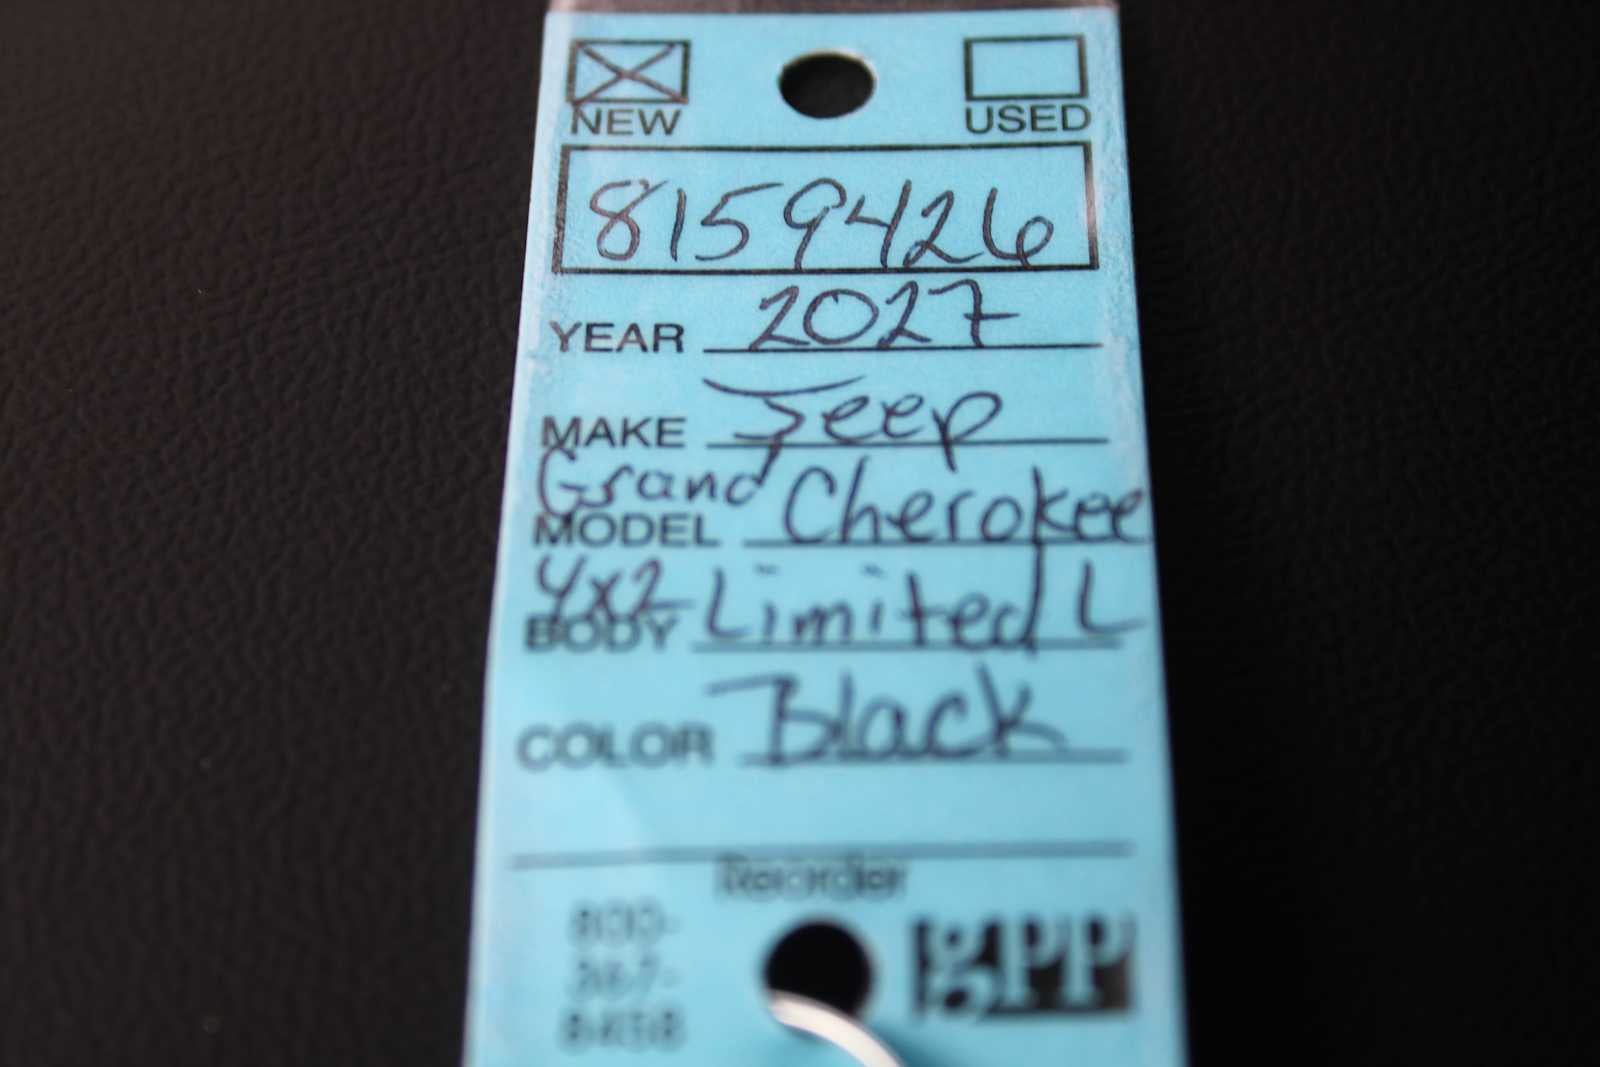 NEW USED
8159426
YEAR 2027
MAKE Jeep
Grand Cherokee
MODEL
4x2 Limited L
BODY
COLOR Black
Reorder
800-
367-
8458
gpp